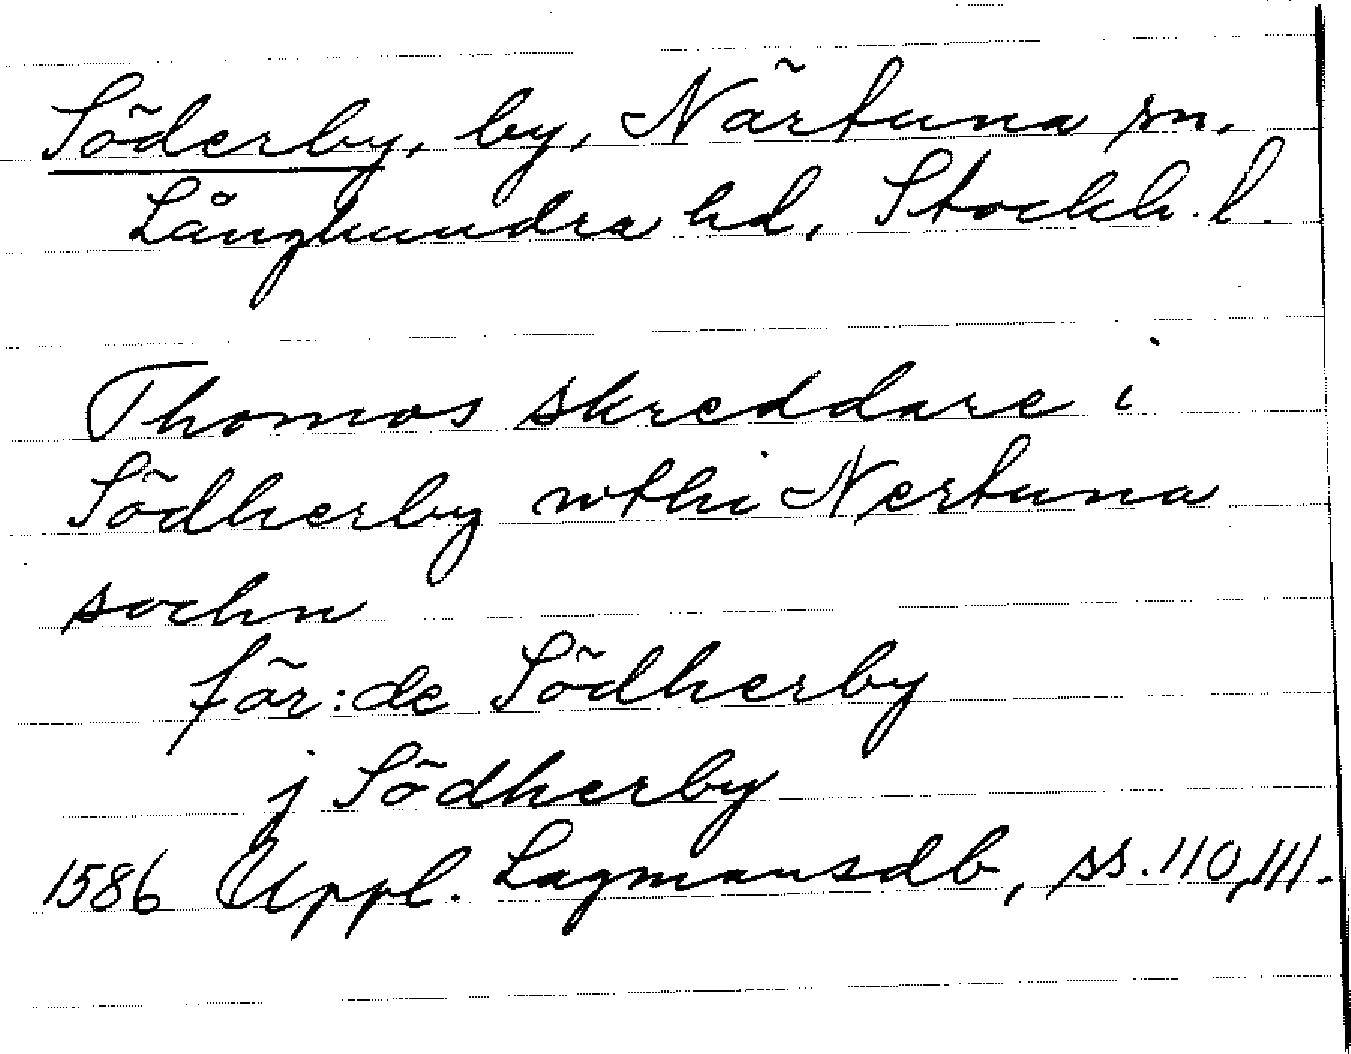 Söderby, by, Närtuna sn,
Långhundra hd, Stockh. l.
Thomos skreddare i
Södherby wthi Nertuna
sochn
för:de Södherby
j Södherby
1586 Uppl. Lagmansdb, ss. 110, 111.